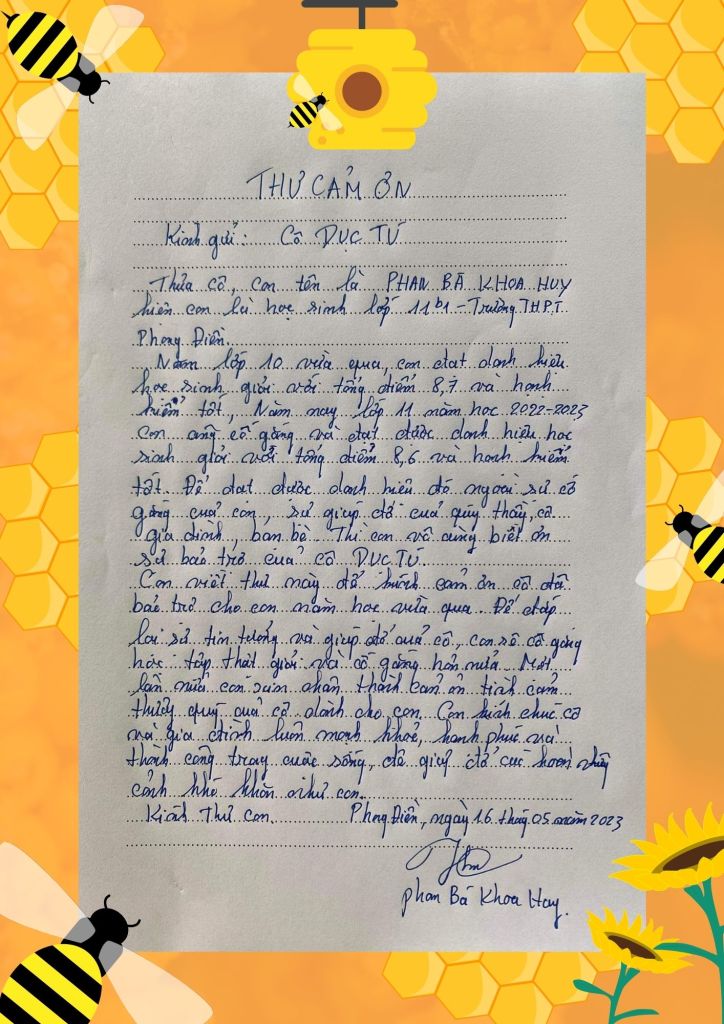 THƯ CẢM ƠN
Kính gửi: Cô DỤC TÚ
Thưa cô, con tên là PHAN BÁ KHOA HUY
hiện con là học sinh lớp 11b1 - Trường THPT
Phong Điền.
Năm lớp 10 vừa qua, con đạt danh hiệu
học sinh giỏi với tổng điểm 8,7 và hạnh
kiểm tốt, Năm nay lớp 11 năm học 2022-2023
con cũng cố gắng và đạt được danh hiệu học
sinh giỏi với tổng điểm 8,6 và hạnh kiểm
tốt. Để đạt được danh hiệu đó ngoài sự cố
gắng của con, sự giúp đỡ của quý thầy, cô
gia đình, bạn bè. Thì con vô cùng biết ơn
sự bảo trợ của cô DỤC TÚ.
Con viết thư này để kính cảm ơn cô đã
bảo trợ cho con năm học vừa qua. Để đáp
lại sự tin tưởng và giúp đỡ của cô, con sẽ cố gắng
học tập thật giỏi và cố gắng hơn nữa. Một
lần nữa con xin chân thành cảm ơn tình cảm
thương quý của cô dành cho con. Con kính chúc cô
và gia đình luôn mạnh khoẻ, hạnh phúc và
thành công trong cuộc sống, để giúp đỡ các hoàn
cảnh khó khăn như con.
Kính Thư con. Phong Điền, ngày 16 tháng 05 năm 2023
Phan Bá Khoa Huy.